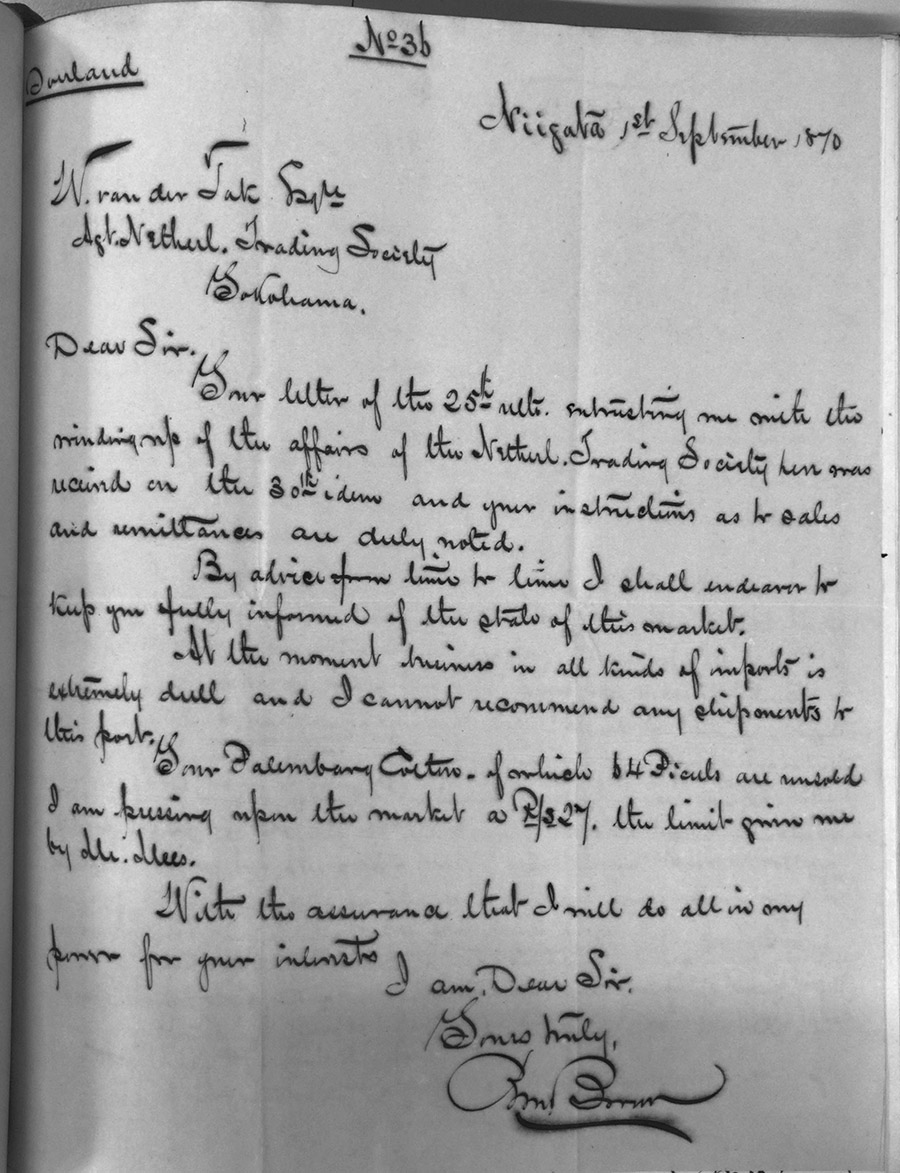 No 36
Overland
Niigata 1st September 1870
W. van der Tak Esqre
Agt. Netherl. Trading Society
Yokohama.
Dear Sir.
Your letter of the 25th ulto. entrusting me with the
winding up of the affairs of the Netherl. Trading Society here was
received on the 30th idem and your instructions as to sales
and remittances are duly noted.
By advice from time to time I shall endeavor to
keep you fully informed of the state of this market.
At the moment business in all kinds of imports is
extremely dull and I cannot recommend any shipments to
this port.
Your Palembang Cotton. of which 64 Piculs are unsold
I am pressing upon the market a R/s 27. the limit given me
by Mr. Mees.
With the assurance that I will do all in my
power for your interests
I am, Dear Sir.
Yours truly,